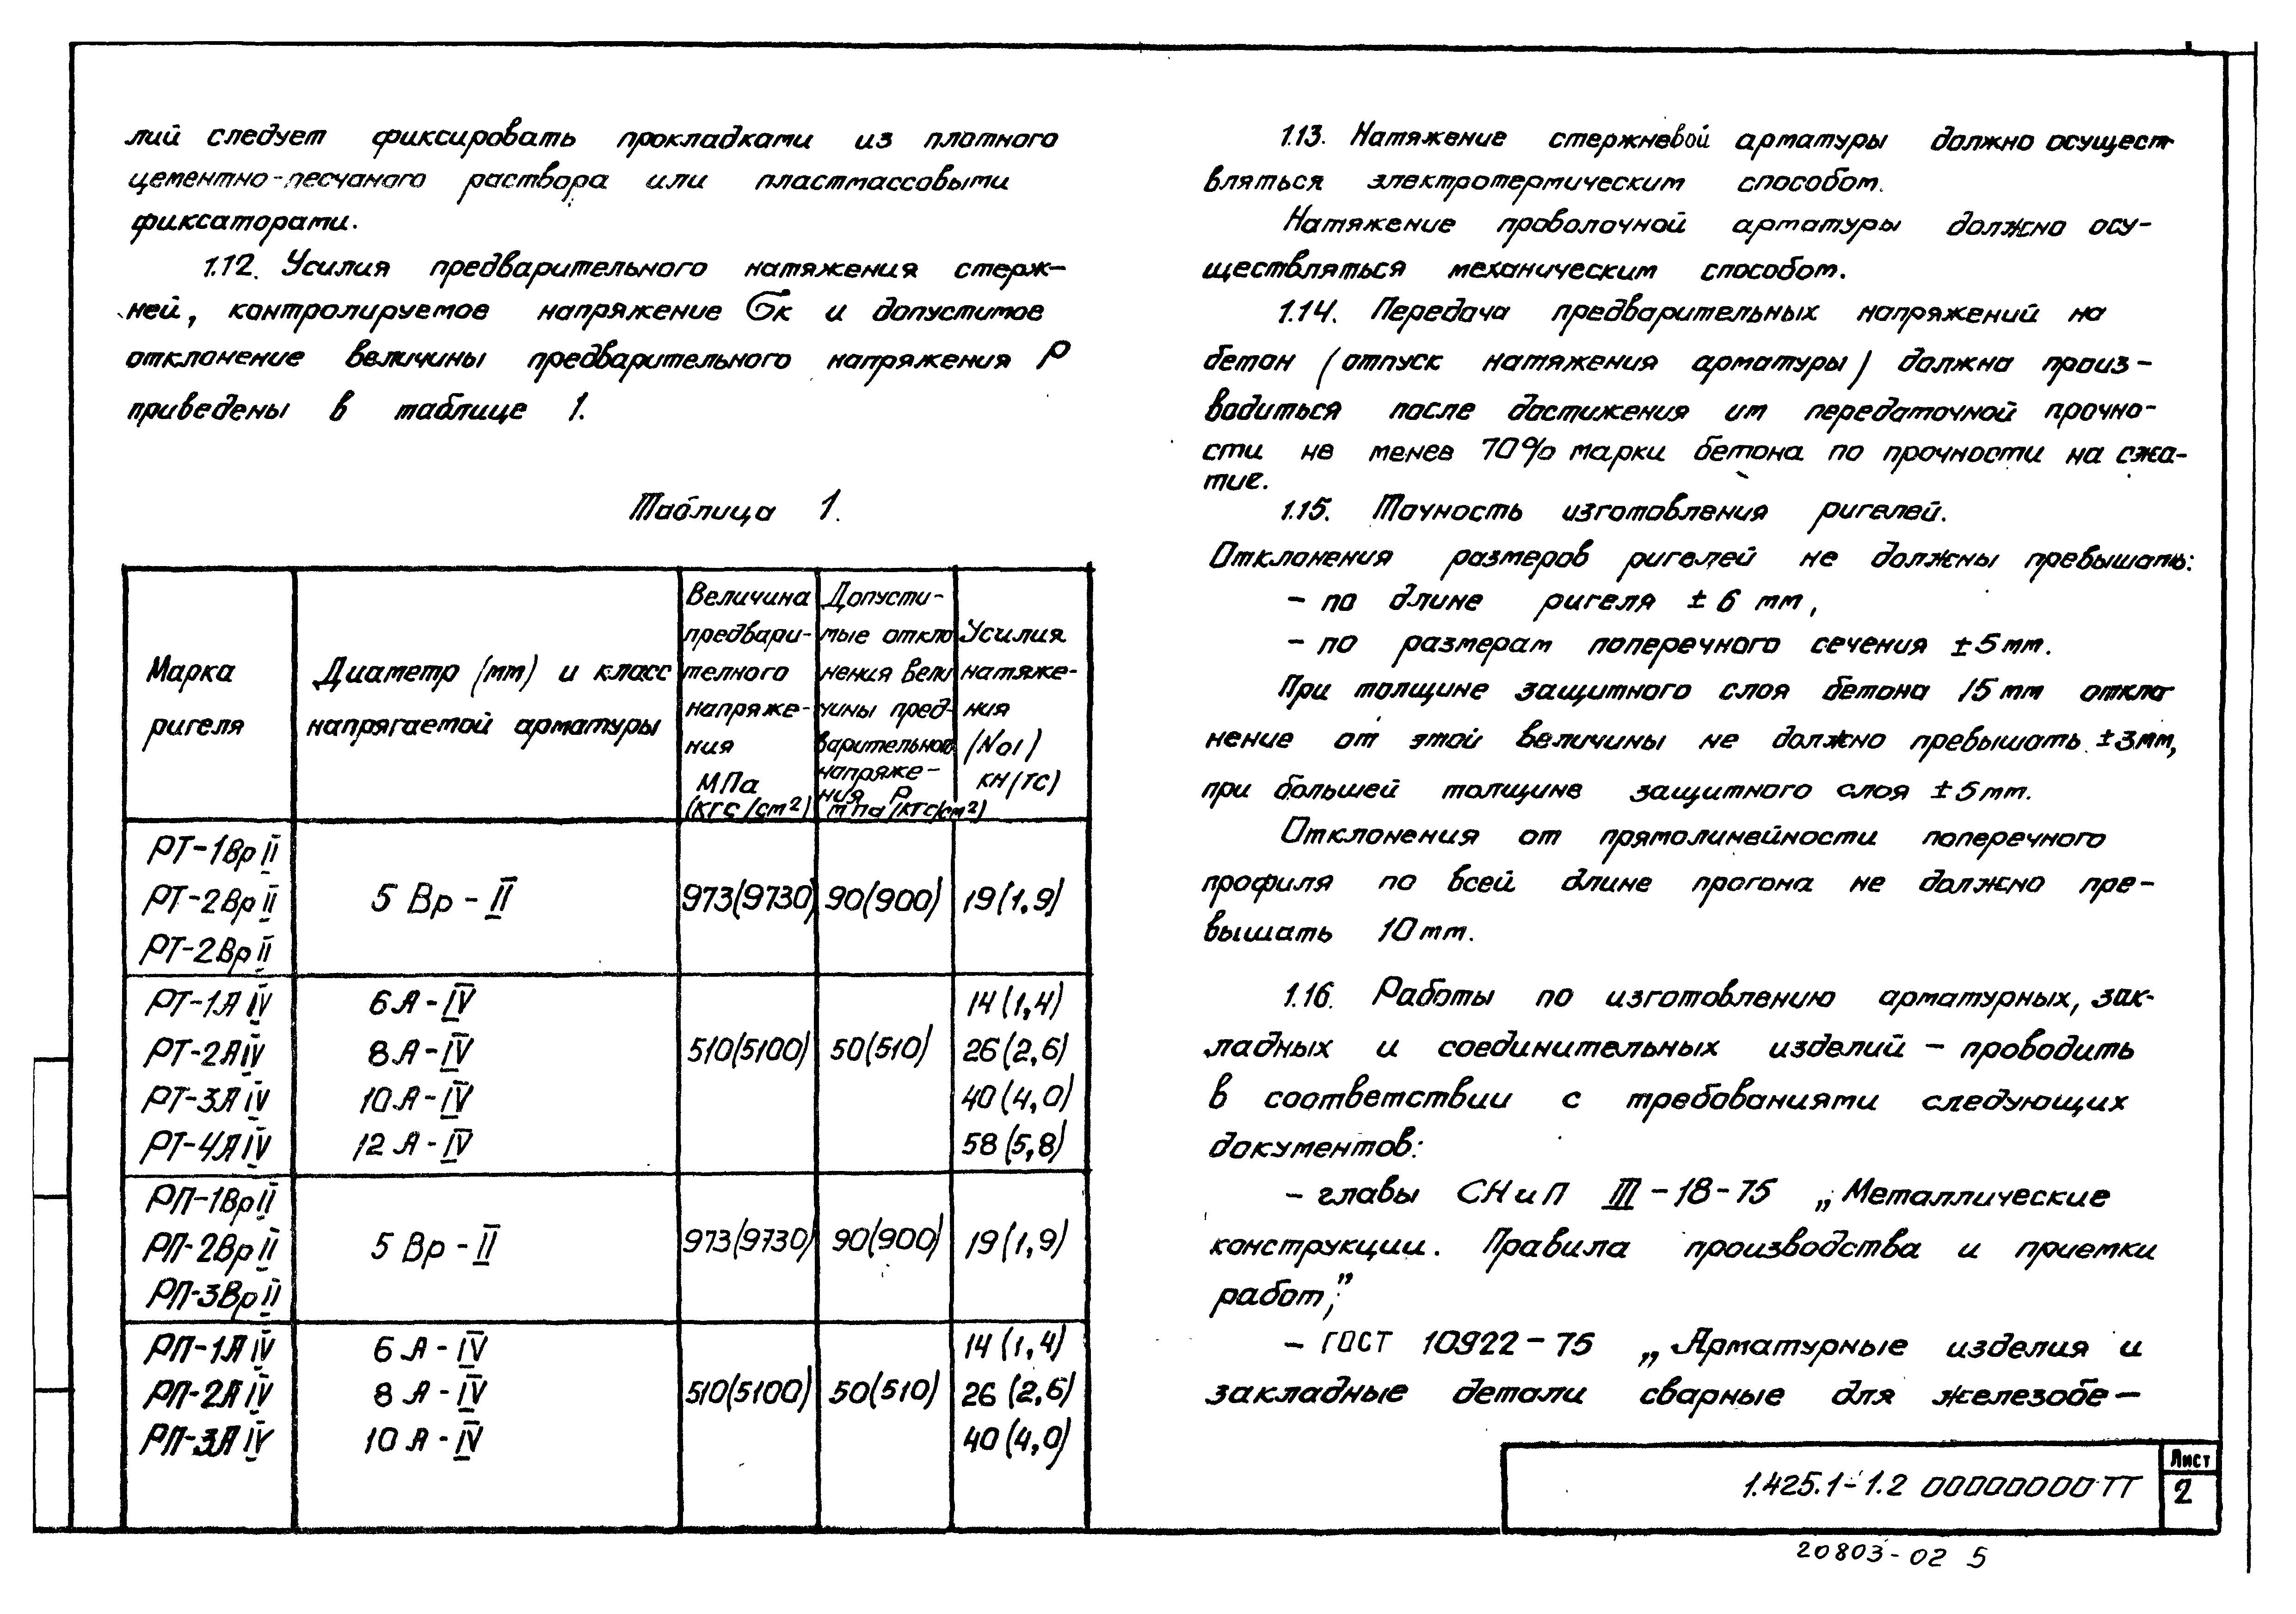 лий следует фиксировать прокладками из плотного
цементно-песчаного раствора или пластмассовыми
фиксаторами.
1.12. Усилия предварительного натяжения стерж-
ней, контролируемое напряжение Gк и допустимое
отклонение величины предварительного напряжения Р
приведены в таблице 1.
Таблица 1.
Марка
ригеля
Диаметр (мм) и класс
напрягаемой арматуры
Величина
предвари-
телного
напряже-
ния
МПа
(кгс/см²)
Допусти-
мые откло
нения вели
чины пред-
варительного
напряже-
ния Р
мПа (кгс/см²)
Усилия
натяже-
ния
(No1)
кн(тс)
РТ-1Вр II
РТ-2Вр II
РТ-2Вр II
5 Вр - II
973(9730)
90(900)
19(1,9)
РТ-1А IV 6 А - IV 14(1,4)
РТ-2А IV 8 А - IV 510(5100) 50(510) 26(2,6)
РТ-3А IV 10 А - IV 40(4,0)
РТ-4А IV 12 А - IV 58(5,8)
РП-1Вр II
РП-2Вр II
РП-3Вр II
5 Вр - II
973(9730)
90(900)
19(1,9)
РП-1А IV 6 А - IV 14(1,4)
РП-2А IV 8 А - IV 510(5100) 50(510) 26(2,6)
РП-3А IV 10 А - IV 40(4,0)
1.13. Натяжение стержневой арматуры должно осущест
вляться электротермическим способом.
Натяжение проволочной арматуры должно осу-
ществляться механическим способом.
1.14. Передача предварительных напряжений на
бетон (отпуск натяжения арматуры) должна произ-
водиться после достижения им передаточной прочно-
сти не менее 70% марки бетона по прочности на сжа-
тие.
1.15. Точность изготовления ригелей.
Отклонения размеров ригелей не должны превышать:
- по длине ригеля ± 6 мм,
- по размерам поперечного сечения ±5мм.
При толщине защитного слоя бетона 15мм откло
нение от этой величины не должно превышать ±3мм,
при большей толщине защитного слоя ±5мм.
Отклонения от прямолинейности поперечного
профиля по всей длине прогона не должно пре-
вышать 10мм.
1.16. Работы по изготовлению арматурных, зак-
ладных и соединительных изделий - проводить
в соответствии с требованиями следующих
документов:
- главы СНиП III-18-75 „Металлические
конструкции. Правила производства и приемки
работ,"
- ГОСТ 10922-75 „Арматурные изделия и
закладные детали сварные для железобе-
1.425.1-1.2 00000000 ТТ
Лист
2
20803-02 5